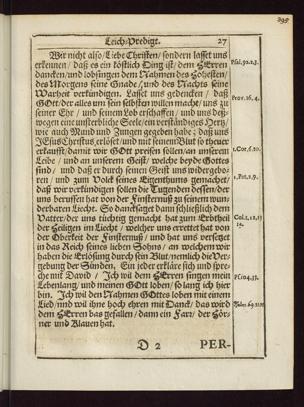 395
Leich-Predigt. 27
Nit nicht also/ Liebe Christen/ sondern lasset uns
erkennen/ daß es ein köstlich Ding ist/ dem HErren
dancken/ und lobsingen dem Nahmen des Höhesten/
des Morgens seine Gnade/ und des Nachts seine
Warheit verkündigen. Lasset uns gedencken/ daß
GOtt/ der alles um sein selbsten willen macht/ uns zu
seiner Ehr/ und seinem Lob erschaffen/ und uns deß-
wegen eine unsterbliche Seele/ ein verständiges Hertz/
wie auch Mund und Zungen gegeben habe; daß uns
JEsus Christus erlöset/ und mit seinem Blut so theuer
erkaufft/ damit wir GOtt preisen sollen/ an unserem
Leibe/ und an unserem Geist/ welche beyde Gottes
sind/ und daß er durch seinen Geist uns widergebo-
ren/ und zum Volck seines Eigenthums gemachet/
daß wir verkündigen sollen die Tugenden dessen/ der
uns beruffen hat von der Finsternuß zu seinem wun-
derbaren Liecht. So dancksaget dann schließlich dem
Vatter/ der uns tüchtig gemacht hat zum Erbtheil
der Heiligen im Liecht/ welcher uns errettet hat von
der Oberkeit der Finsternuß/ und hat uns versetzet
in das Reich seines lieben Sohns/ an welchem wir
haben die Erlösung durch sein Blut/ nemlich die Ver-
gebung der Sünden. Ein jeder erkläre sich und spre-
che mit David/ Ich wil dem HErren singen mein
Lebenlang/ und meinen GOtt loben/ so lang ich hier
bin. Ich wil den Nahmen GOttes loben mit einem
Lied/ und wil ihne hoch ehren mit Danck/ das wird
dem HErren bas gefallen/ dann ein Farr/ der Hör-
ner und Klauen hat.
Psal. 92. 2. 3.
Prov. 16. 4.
1. Cor. 6. 20.
1. Pet. 2. 9.
Col. 1. 12. 13
D 2 PER-